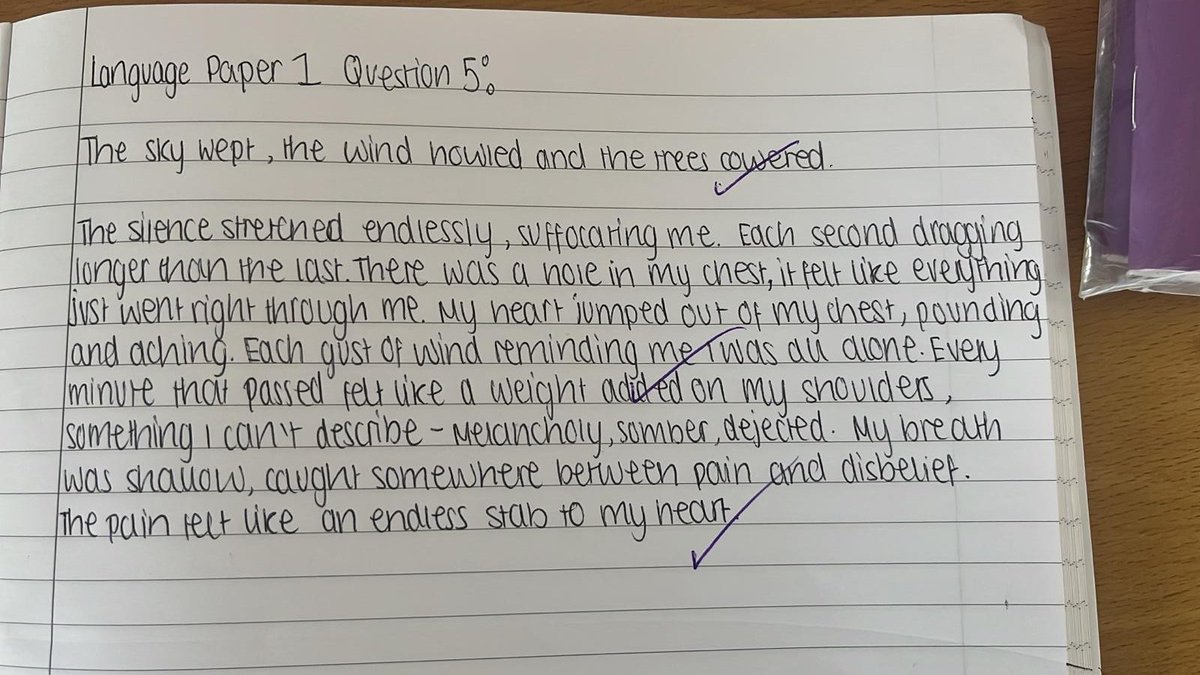 Language Paper 1 Question 5:
The sky wept, the wind howled and the trees cowered.
The silence stretched endlessly, suffocating me. Each second dragging
longer than the last. There was a hole in my chest, it felt like everything
just went right through me. My heart jumped out of my chest, pounding
and aching. Each gust of wind reminding me I was all alone. Every
minute that passed felt like a weight added on my shoulders,
something I can't describe - Melancholy, somber, dejected. My breath
was shallow, caught somewhere between pain and disbelief.
The pain felt like an endless stab to my heart.